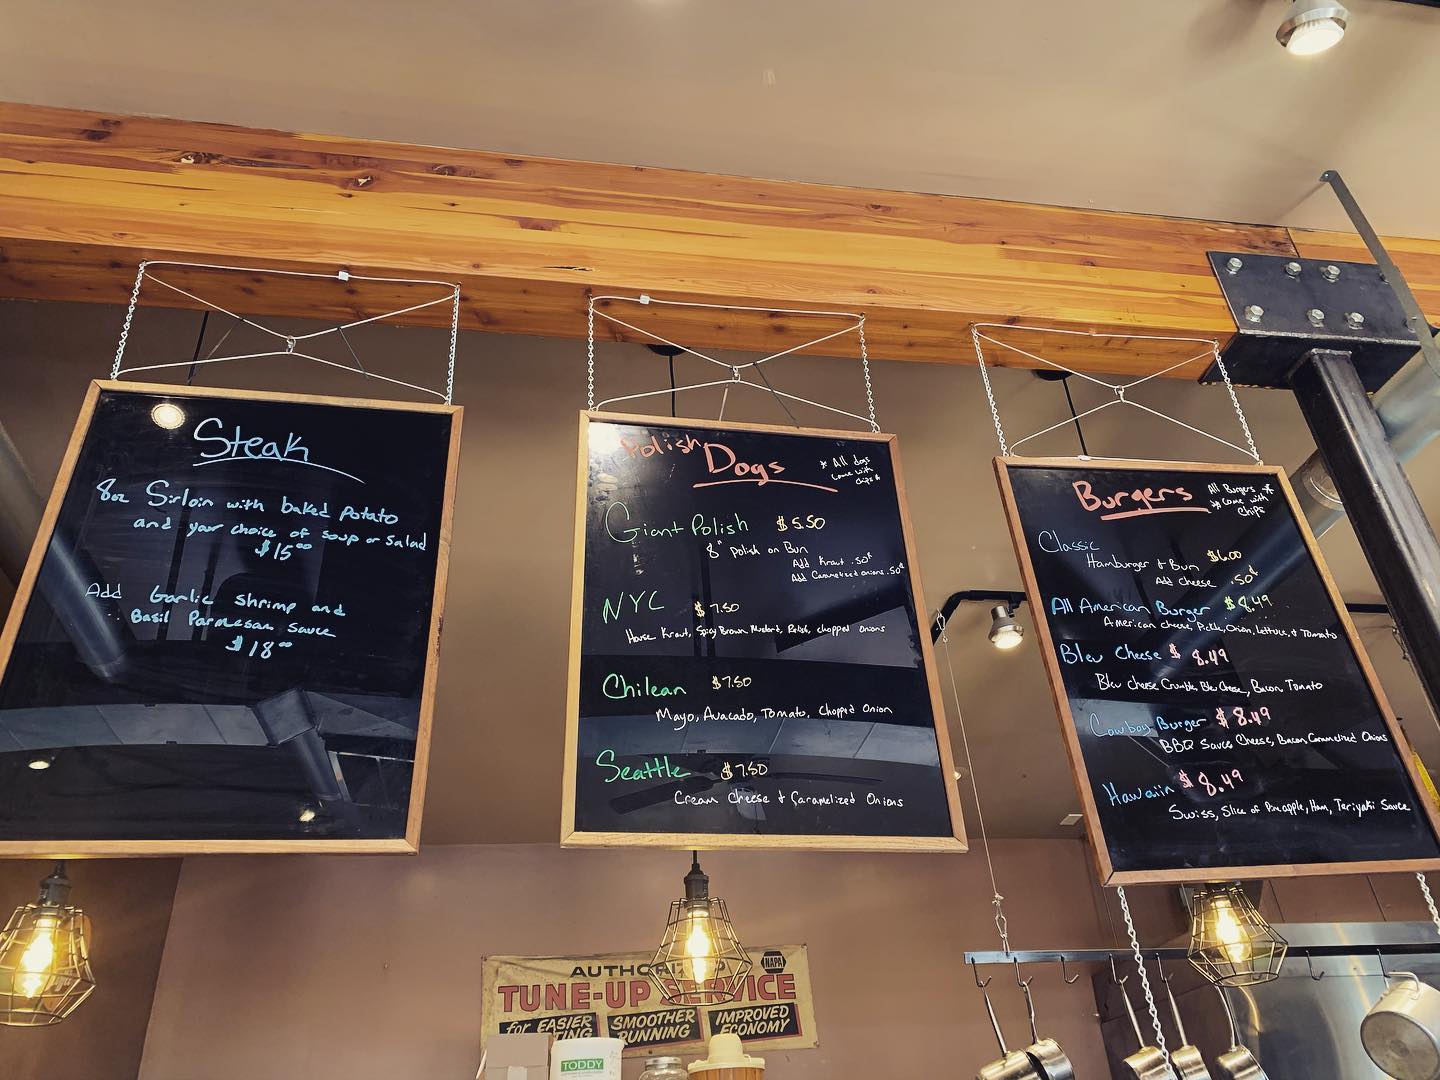 Steak
8oz Sirloin with baked potato
and your choice of soup or salad
$15⁰⁰
Add Garlic shrimp and
Basil Parmesan sauce
$18⁰⁰
Polish Dogs
* All dogs
come with
chips *
Giant Polish $5.50
8" polish on Bun
Add Kraut .50¢
Add Caramelized onions .50¢
NYC $7.50
House Kraut, Spicy Brown Mustard, Relish, chopped onions
Chilean $7.50
Mayo, Avacado, Tomato, Chopped Onion
Seattle $7.50
Cream Cheese & Caramelized Onions
Burgers
All Burgers *
* come with
chips
Classic
Hamburger & Bun $6.00
Add cheese .50¢
All American Burger $8.49
American cheese, Pickle, Onion, Lettuce, & Tomato
Bleu Cheese $8.49
Bleu Cheese Crumble, Bleu Cheese, Bacon, Tomato
Cowboy Burger $8.49
BBQ Sauce, Cheese, Bacon, Caramelized Onions
Hawaiin $8.49
Swiss, Slice of Pineapple, Ham, Teriyaki Sauce
NAPA
TUNE-UP SERVICE
for EASIER
SMOOTHER
RUNNING
IMPROVED
ECONOMY
TODDY